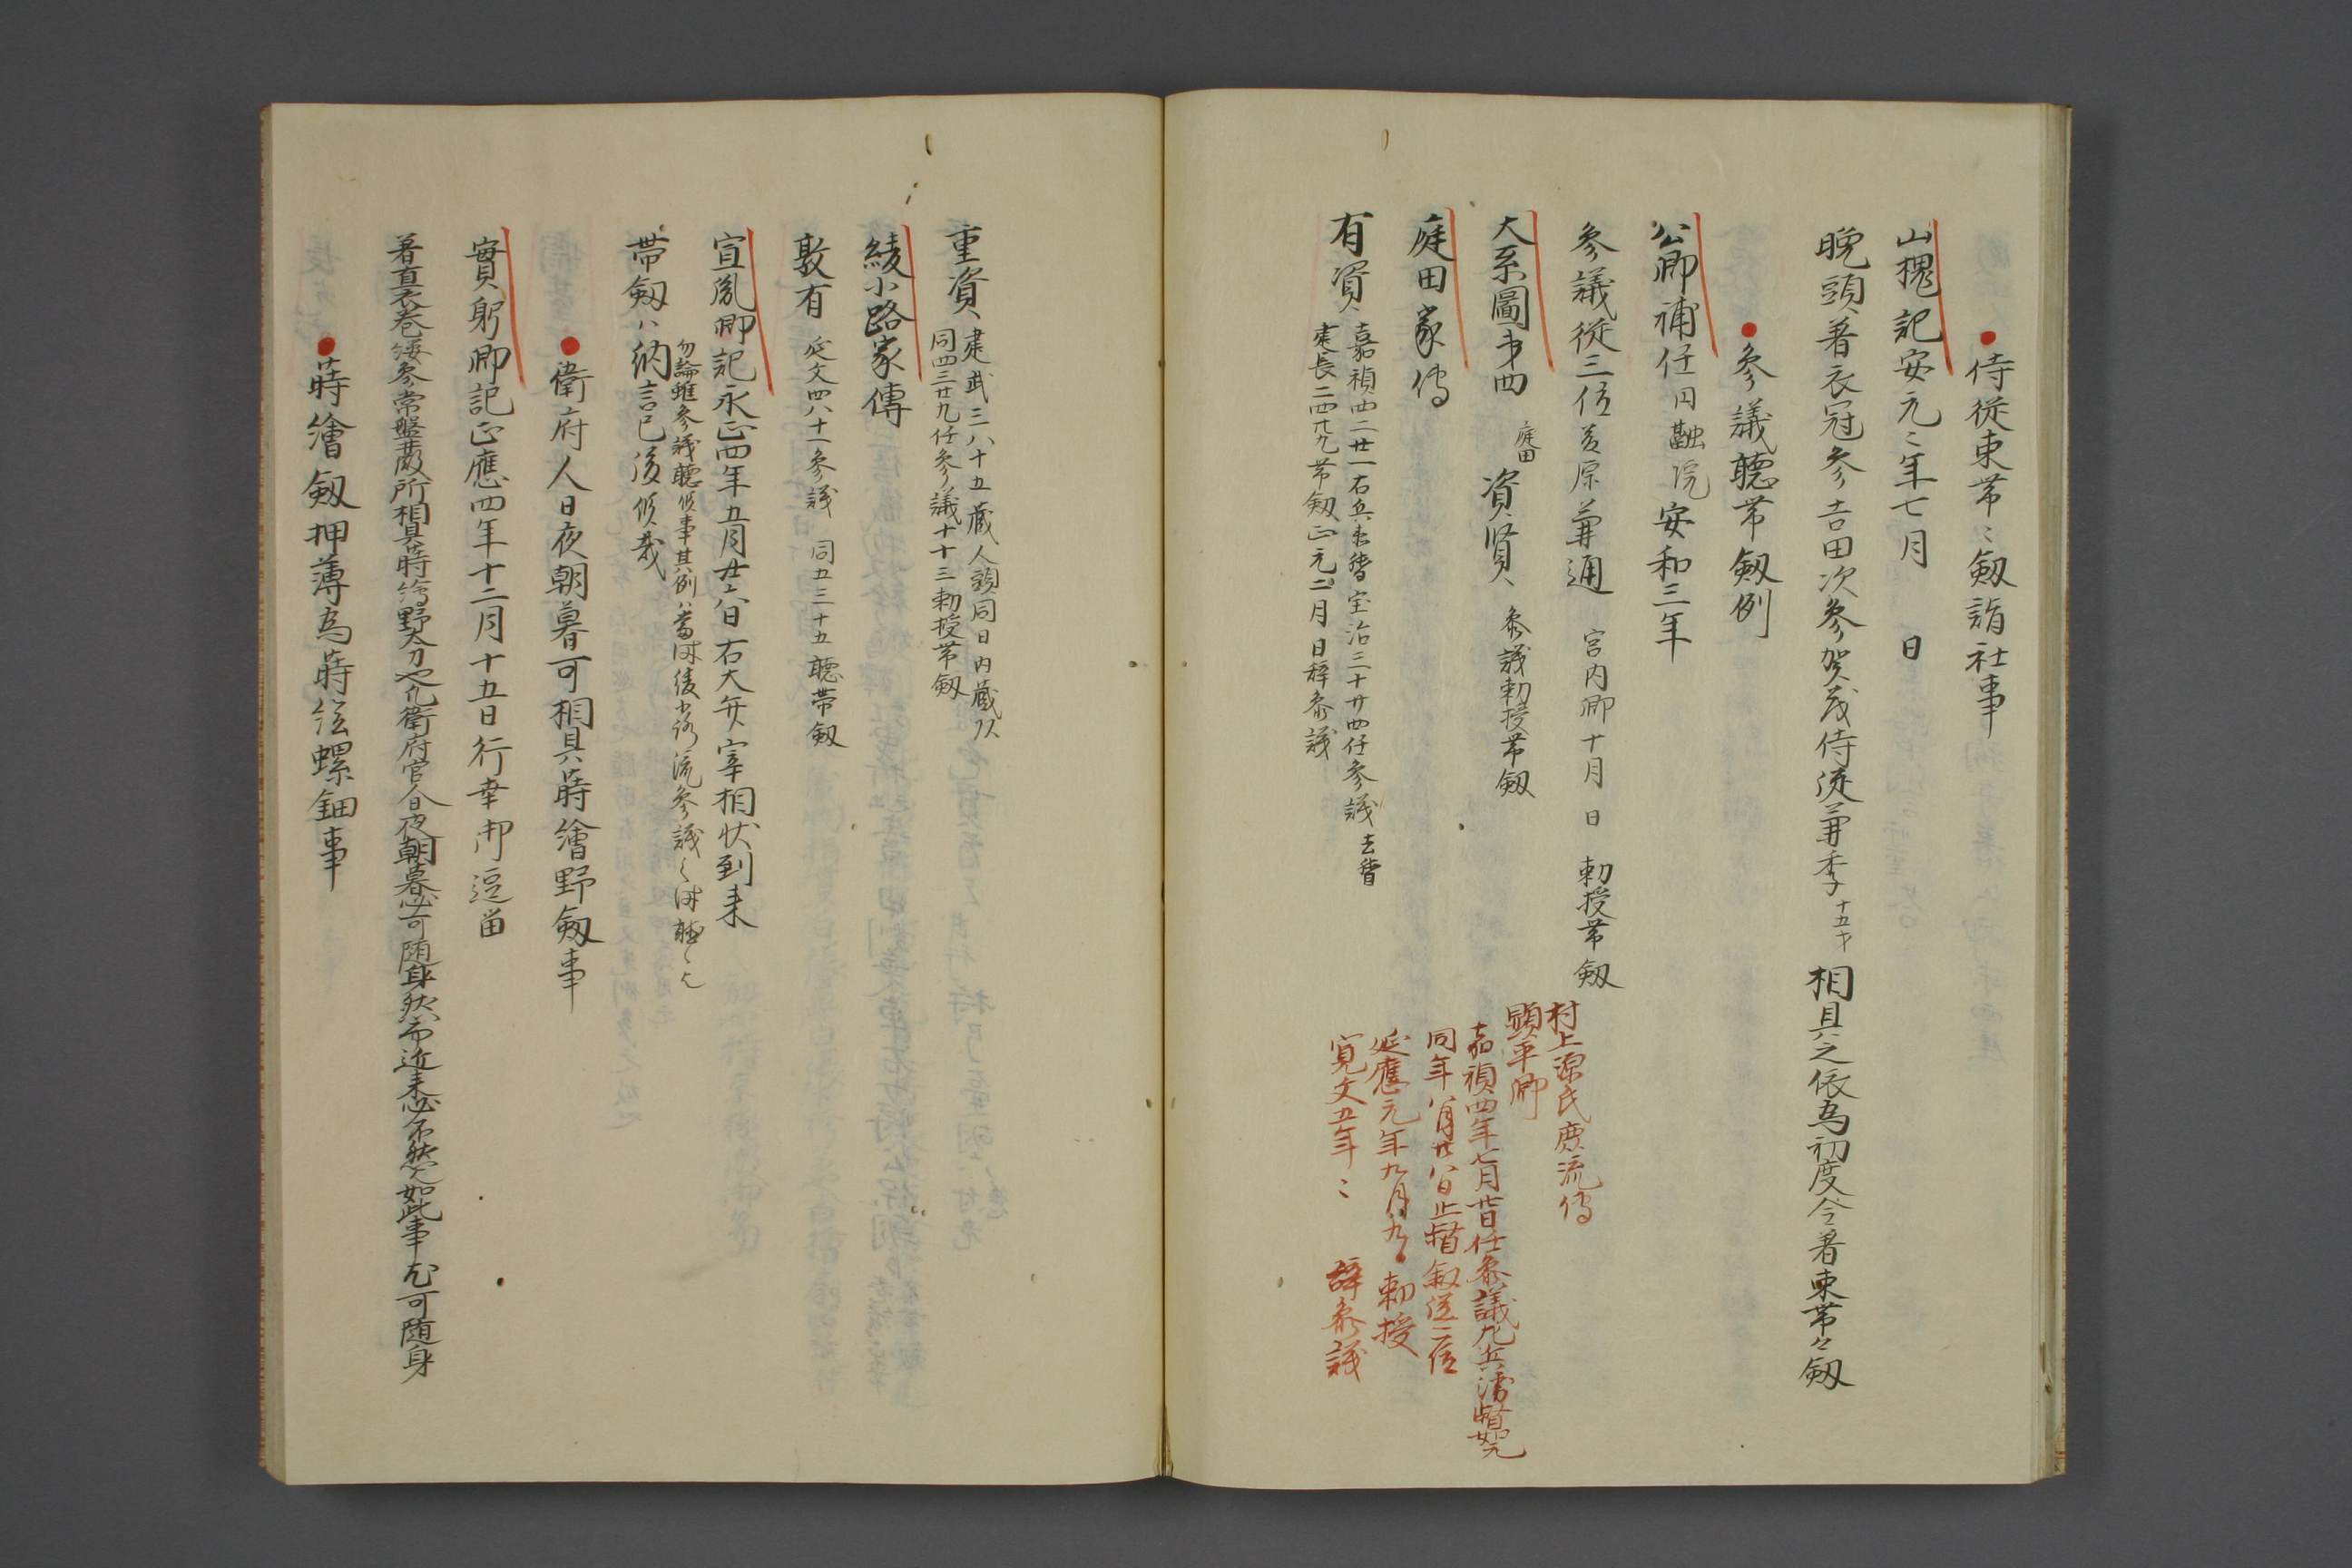 侍從束帯〻釼詣社事
山槐記安元〻年七月　日
晩頭着衣冠參吉田次參賀茂侍従兼季十五才相具之依為初度令着束帯々釼
參議聴帯釼例
公卿補任円融院安和三年
參議從三位藤原兼通　宮内卿十月　日　勅授帯釼
大系圖第四　庭田　資賢　参議勅授帯釼
庭田家傳
有資　嘉禎四二廿一右兵衛督宝治三十廿四任參議去督
建長二四廿九帯釼正元二二月日辞参議
村上源氏庶流傳
顕平卿
嘉禎四年七月廿日任参議左兵衛督如元
同年八月廿八日止督叙從二位
延應元年九月九日勅授
寛文五年〻　辞参議
重資　建武三八十五蔵人頭同日内蔵頭
同四三廿九任參議十十三勅授帯釼
綾小路家傳
敦有　延文四八十一參議　同五三十五聴帯釼
宣胤卿記永正四年五月廿六日右大弁宰相状到来
帯釼ハ納言已後候哉
勿論雖参議聴候事其例ハ當時綾小路流参議之時聴之也
衛府人日夜朝暮可相具蒔繪野釼事
實躬卿記正應四年十二月十五日行幸御逗留
着直衣巻纓参常盤井殿所相具蒔繪野太刀也凡衛府官人日夜朝暮必可随身然而近来必不然如此事尤可随身
蒔繪釼押薄為蒔絵螺鈿事